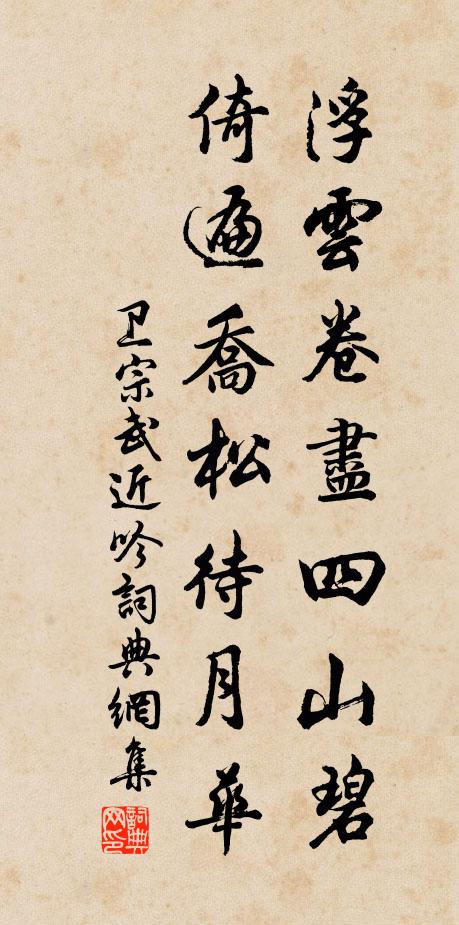 浮雲卷盡四山碧
倚遍喬松待月華
卫宗武近吟詞典網集
詞典網印